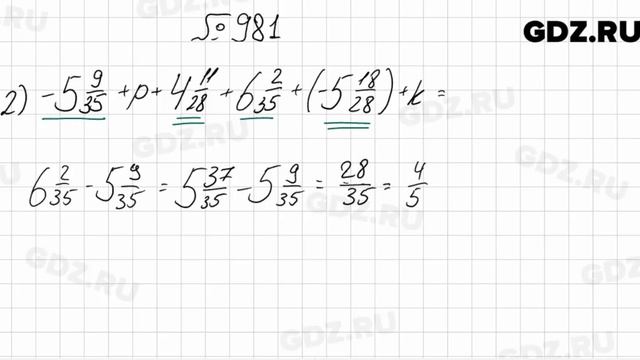 № 981
GDZ.RU
2) -5 9/35 + p + 4 11/28 + 6 2/35 + (-5 18/28) + k =
6 2/35 - 5 9/35 = 5 37/35 - 5 9/35 = 28/35 = 4/5
GDZ.RU
GDZ.RU
GDZ.RU
GDZ.RU
GDZ.RU
GDZ.RU